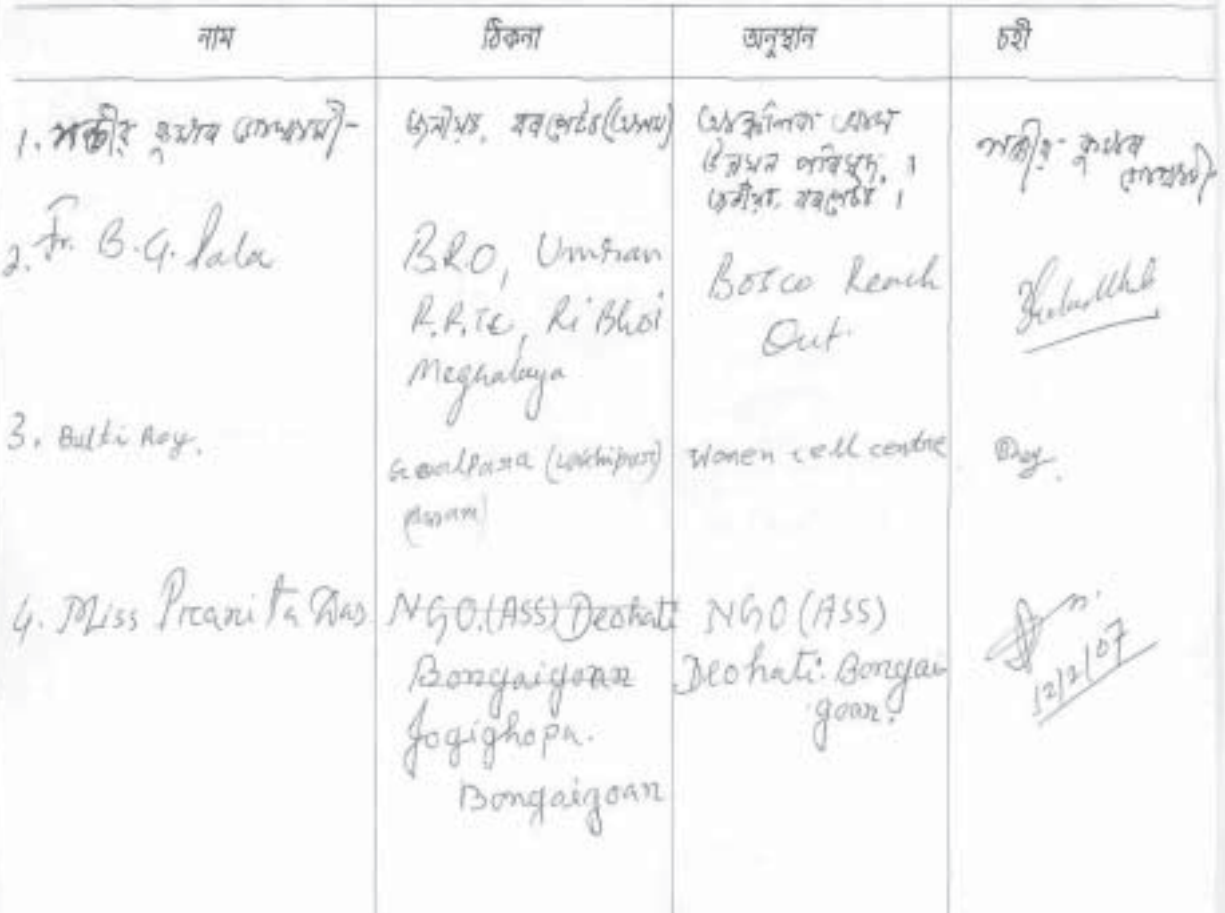 নাম ঠিকনা অনুস্থান চহী
1. কুমাৰ
জনীয়া, বৰপেটা (অসম)
উন্নয়ন পৰিষদ, ।
জনীয়া, বৰপেটা ।
কুমাৰ
2. Fr. B.G. Pala
BRO, Umran
R.R.TC, Ri Bhoi
Meghalaya
Bosco Reach
Out.
3. Bulti Roy.
Goalpara (Lakhipur)
(Assam)
Women cell centre
Roy.
4. Miss Pranita Das
NGO.(ASS) Deohati
Bongaigoan
Jogighopa.
Bongaigoan
NGO (ASS)
Deohati. Bongai
goan.
12/2/07